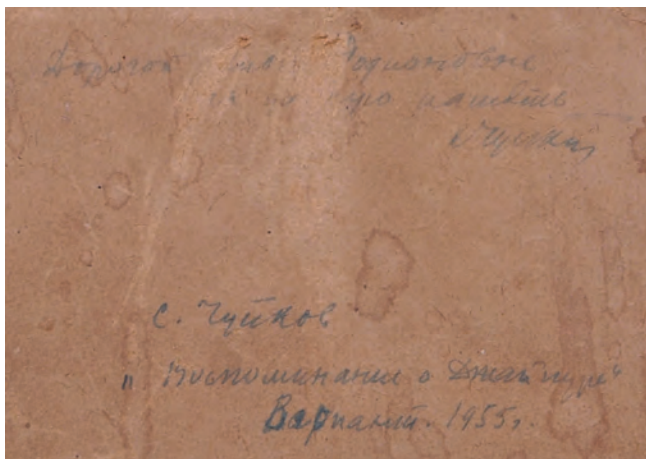 Дорогой Родионовне
на память
С. Чуйков
"Воспоминание о Джайпуре"
Вариант. 1955г.